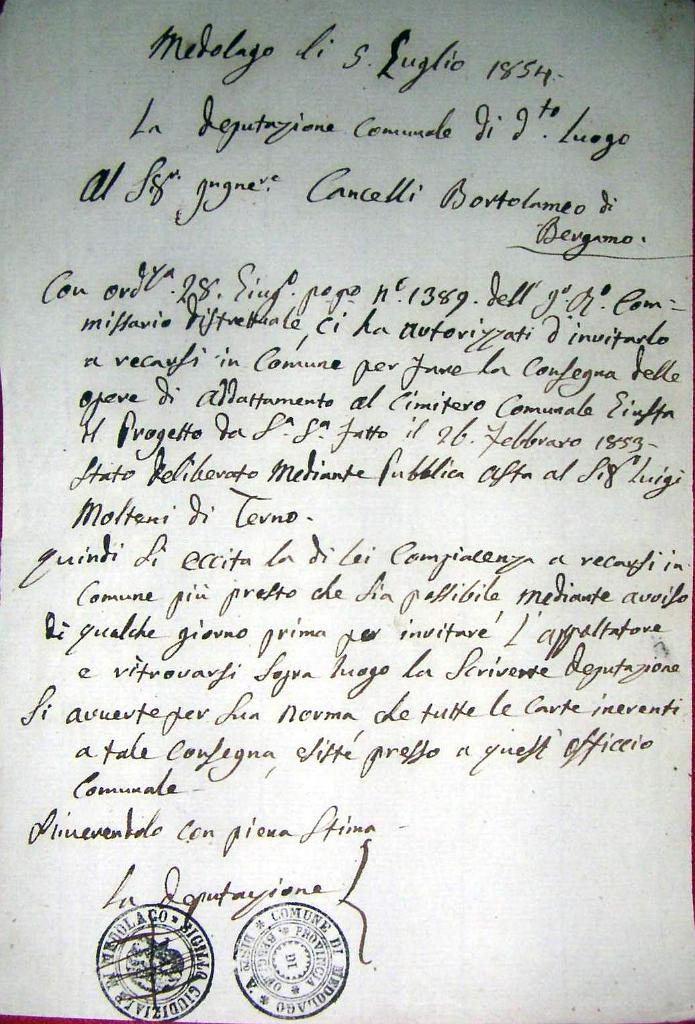 Medolago li 5. Luglio 1854.
La deputazione Comunale di d.to Luogo
Al Sigr. Cancelli Bortolameo di
Bergamo.
Con 28. n.° 1389. dell' Com=
missario distrettuale, ci ha autorizzati d'invitarlo
a recarsi in Comune per fare la Consegna delle
opere di addattamento al Cimitero Comunale Giusta
Il Progetto da S.a S.a fatto il 26. Febbraro 1853
stato deliberato Mediante Pubblica Asta al Sigr Luigi
Molteni di Terno.
quindi Si eccita la di lei Compiacenza a recarsi in
Comune più presto che Sia possibile mediante avviso
di qualche giorno prima per invitare L'appaltatore
e ritrovarsi Sopra luogo la Scrivente deputazione
Si avverte per Sua Norma che tutte le Carte inerenti
a tale Consegna, esiste presso a quest' officcio
Comunale
Riverendolo con piena Stima
La deputazione
SIGILLO GIUDIZIALE DI MEDOLAGO
COMUNE DI MEDOLAGO
PROVINCIA
DI